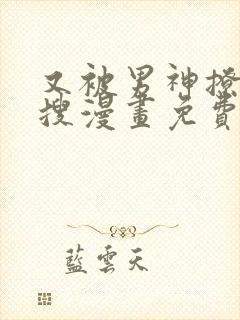 又被男神撩
搜漫畫免費
藍雲天